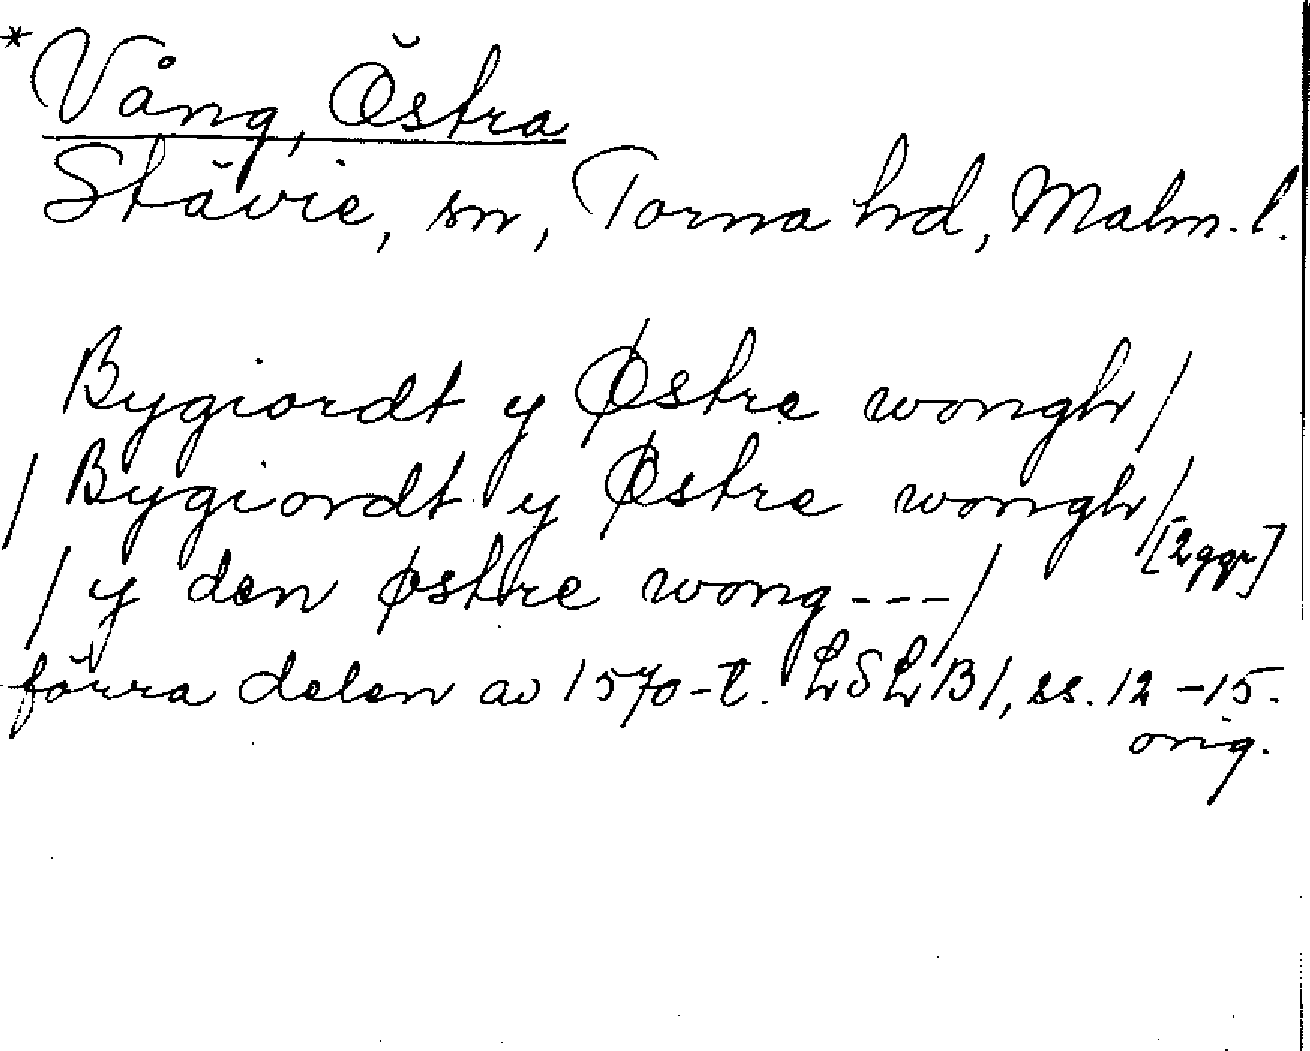 *Vång, Östra
Stävie, sn, Torna hd, Malm. l.
Bygiordt y Østre wongh/
/Bygiordt y Østre wongh/ [2ggr]
/y den østre wong---/
förra delen av 1570-t. LSLB1, ss. 12-15.
orig.